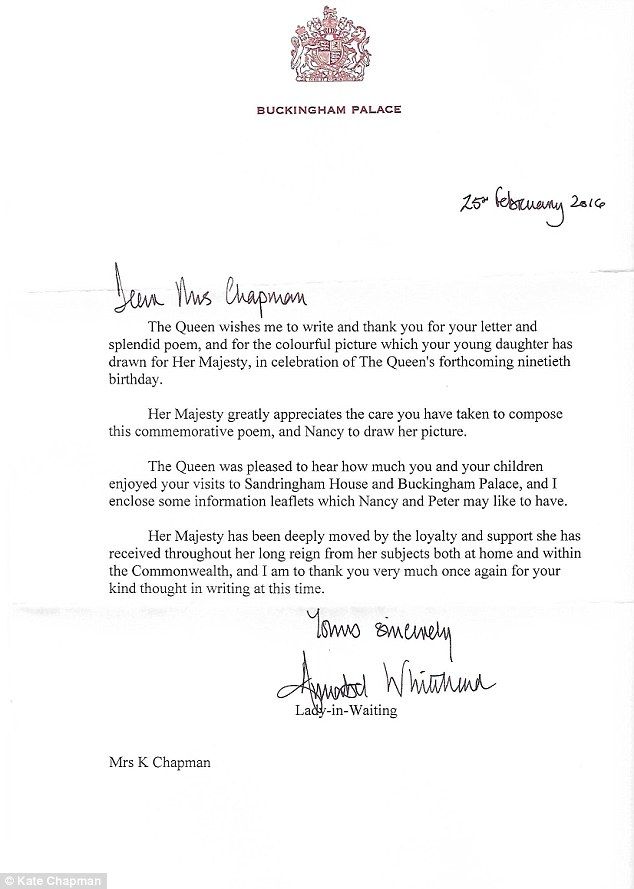 BUCKINGHAM PALACE
25th February 2016
Dear Mrs Chapman
The Queen wishes me to write and thank you for your letter and
splendid poem, and for the colourful picture which your young daughter has
drawn for Her Majesty, in celebration of The Queen's forthcoming ninetieth
birthday.
Her Majesty greatly appreciates the care you have taken to compose
this commemorative poem, and Nancy to draw her picture.
The Queen was pleased to hear how much you and your children
enjoyed your visits to Sandringham House and Buckingham Palace, and I
enclose some information leaflets which Nancy and Peter may like to have.
Her Majesty has been deeply moved by the loyalty and support she has
received throughout her long reign from her subjects both at home and within
the Commonwealth, and I am to thank you very much once again for your
kind thought in writing at this time.
Yours sincerely
Lady-in-Waiting
Mrs K Chapman
© Kate Chapman